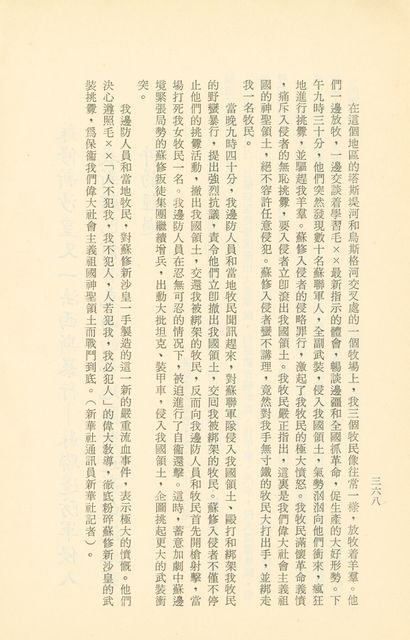 三六八
在這個地區的塔斯堤河和烏斯格河交叉處的一個牧場上，我三個牧民像往常一樣，放牧着羊羣。他
們一邊放牧，一邊交談着學習毛××最新指示的體會，暢談邊疆和全國抓革命，促生產的大好形勢。下
午九時三十分，他們突然發現數十名蘇聯軍人，全副武裝，侵入我國領土，氣勢汹汹向他們衝來，瘋狂
地進行挑釁，並驅趕我羊羣。蘇修入侵者的侵略罪行，激起了我牧民的極大憤怒。我牧民滿懷革命義憤
，痛斥入侵者的無恥挑釁，要入侵者立卽滾出我國領土。我牧民嚴正指出，這裏是我們偉大社會主義祖
國的神聖領土，絕不容許任意侵犯。蘇修入侵者蠻不講理，竟然對我手無寸鐵的牧民大打出手，並綁走
我一名牧民。
當晚九時四十分，我邊防人員和當地牧民聞訊趕來，對蘇聯軍隊侵入我國領土、毆打和綁架我牧民
的野蠻暴行，提出強烈抗議，責令他們立卽撤出我國領土，交回我被綁架的牧民。蘇修入侵者不僅不停
止他們的挑釁活動，撤出我國領土，交還我被綁架的牧民，反而向我邊防人員和牧民首先開槍射擊，當
場打死我女牧民一名。我邊防人員在忍無可忍的情况下，被迫進行了自衞還擊。這時，蓄意加劇中蘇邊
境緊張局勢的蘇修叛徒集團繼續增兵，出動大批坦克、裝甲車，侵入我國領土，企圖挑起更大的武裝衝
突。
我邊防人員和當地牧民，對蘇修新沙皇一手製造的這一新的嚴重流血事件，表示極大的憤慨。他們
決心遵照毛××「人不犯我，我不犯人，人若犯我，我必犯人」的偉大教導，徹底粉碎蘇修新沙皇的武
裝挑釁，爲保衞我們偉大社會主義祖國神聖領土而戰鬥到底。（新華社通訊員新華社記者）。